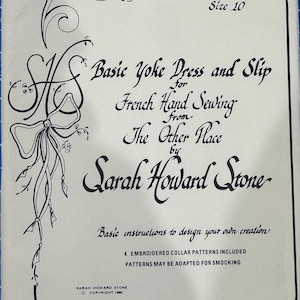 Size 10
SHS
Basic Yoke Dress and Slip
for
French Hand Sewing
from
The Other Place
by
Sarah Howard Stone
Basic instructions to design your own creation
4 EMBROIDERED COLLAR PATTERNS INCLUDED
PATTERNS MAY BE ADAPTED FOR SMOCKING
SARAH HOWARD STONE
© COPYRIGHT